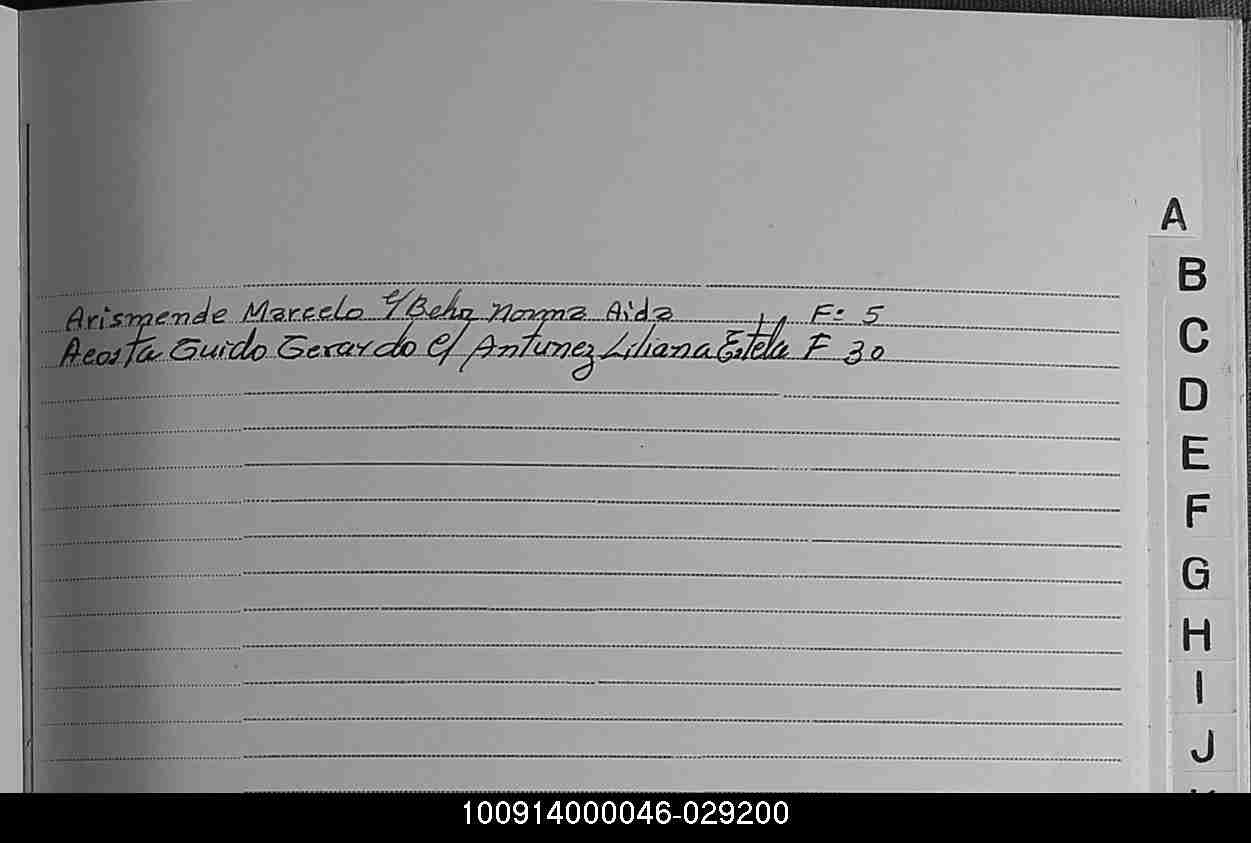 Arismende Marcelo c/ Behr Norma Aida F: 5
Acosta Guido Gerardo c/ Antunez Liliana Estela F 30
A
B
C
D
E
F
G
H
I
J
100914000046-029200